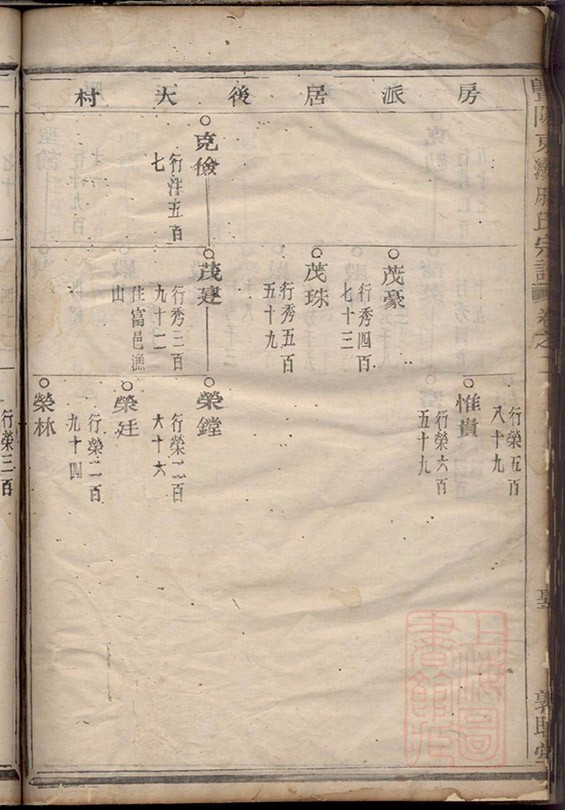 房派居後大村
行榮五百
八十九
惟貴
行榮六百
五十九
茂豪
行秀四百
七十三
茂珠
行秀五百
五十九
克儉
行洋五百
七
茂建
行秀三百
九十二
住富邑漁
山
榮鏜
行榮二百
六十六
榮廷
行榮二百
九十四
榮林
行榮三百